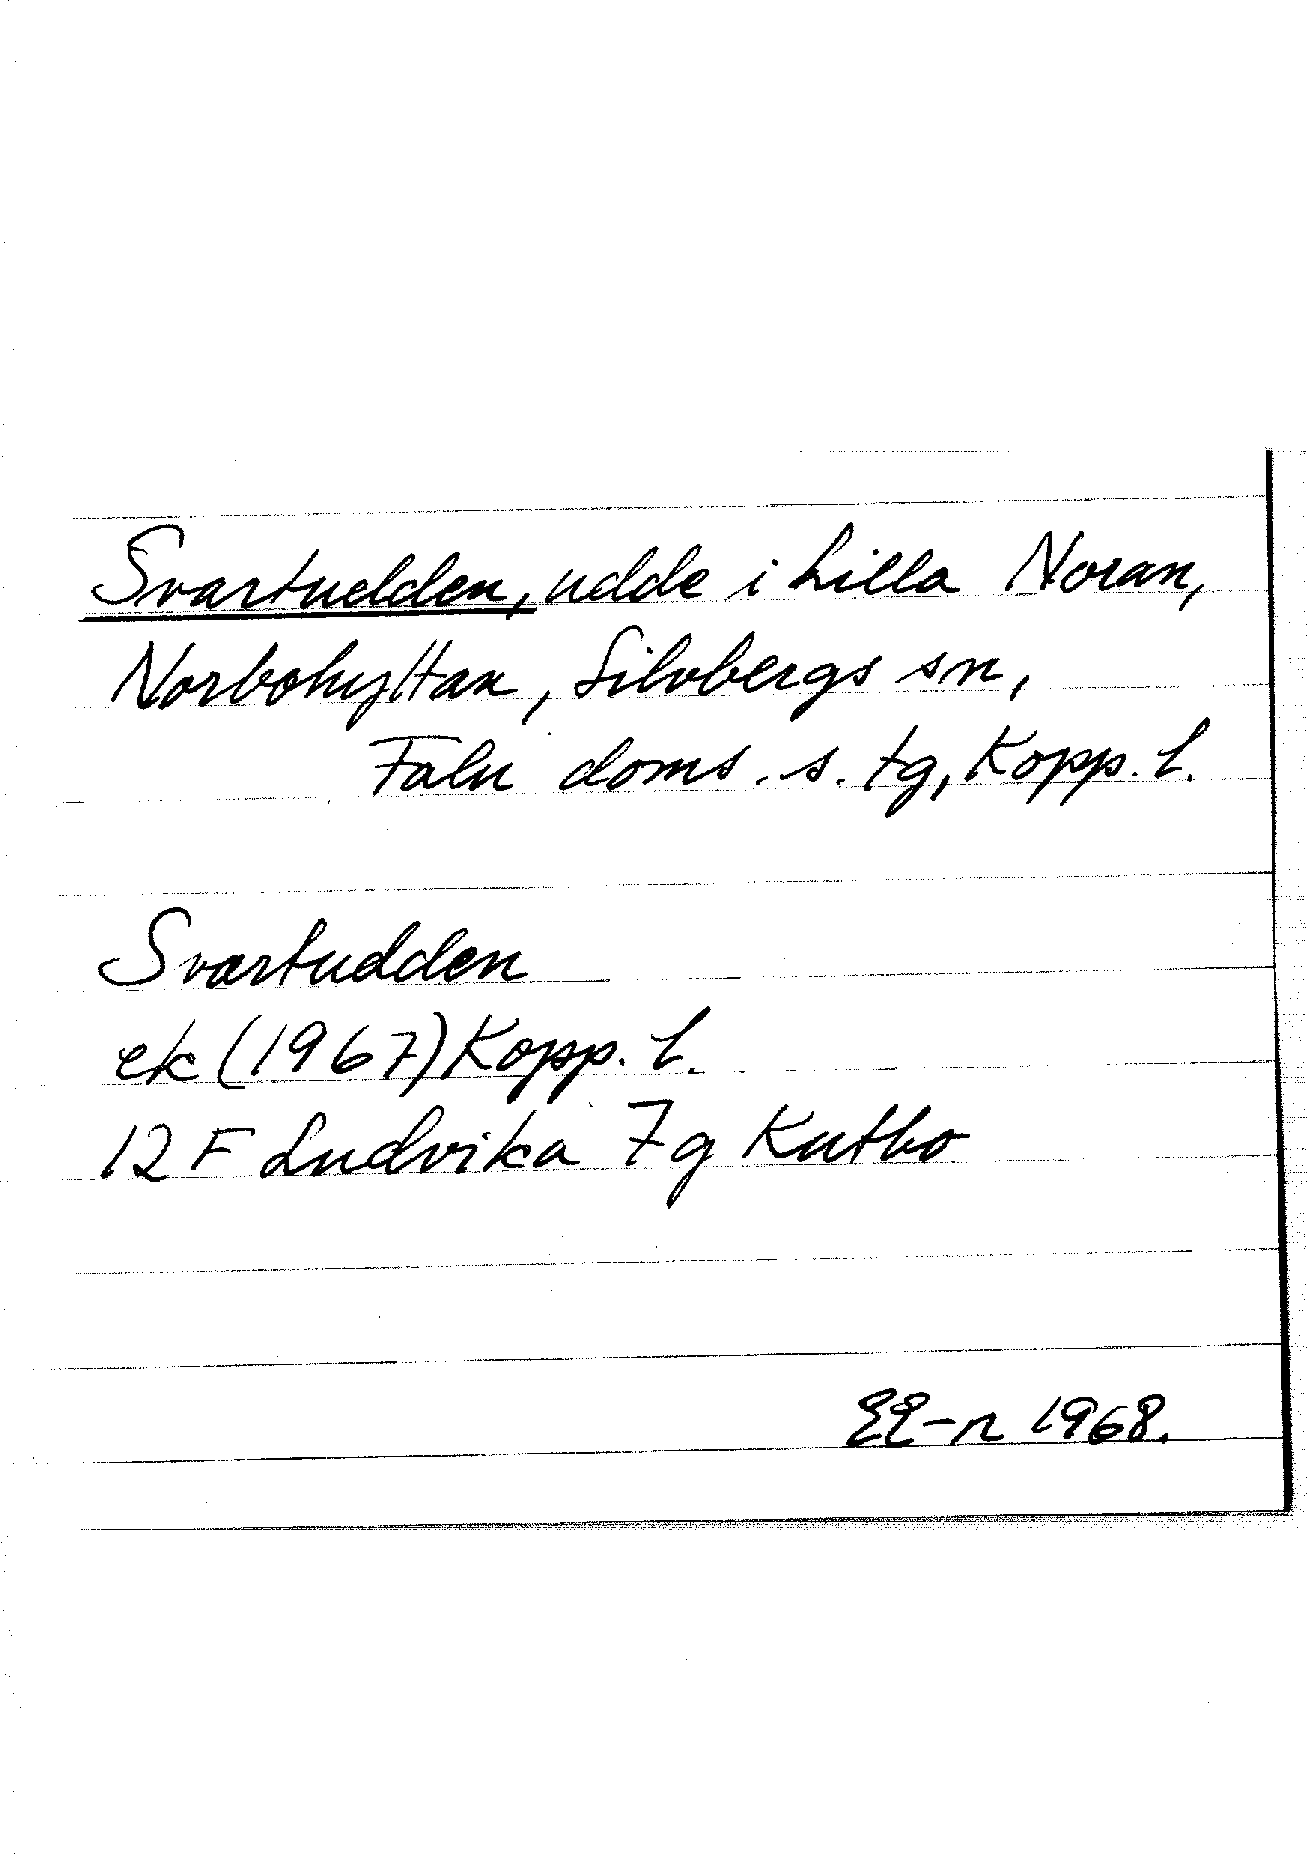 Svartudden, udde i Lilla Noran,
Norbohyttan, Silvbergs sn,
Falu doms. s. tg, Kopp. l.
Svartudden
ek (1967) Kopp. l.
12 F Ludvika 7g Kutbo
EE-n 1968.